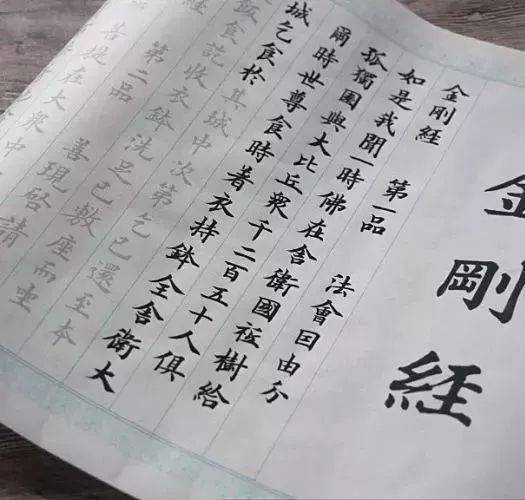 金剛經
金剛經 第一品 法會囙由分
如是我聞一時佛在舍衛國祗樹給
孤獨園與大比丘眾千二百五十人俱
爾時世尊食時著衣持鉢全舍衛大
城乞食於其城中次第乞已還至本
飯食訖收衣鉢洗足已敷座而坐
經 第二品 善現啓請
菩提在大眾中